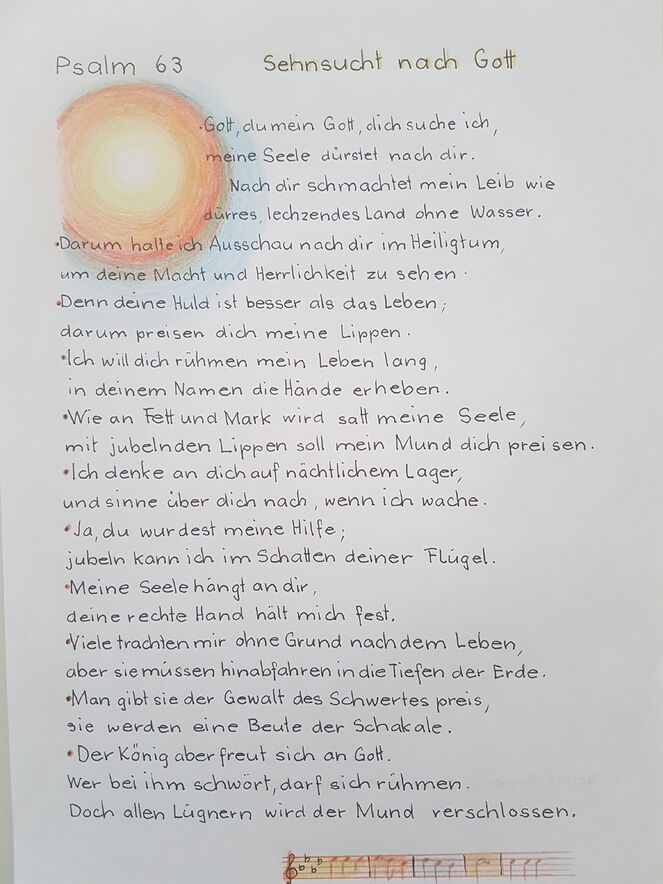 Psalm 63 Sehnsucht nach Gott
Gott, du mein Gott, dich suche ich,
meine Seele dürstet nach dir.
Nach dir schmachtet mein Leib wie
dürres, lechzendes Land ohne Wasser.
•Darum halte ich Ausschau nach dir im Heiligtum,
um deine Macht und Herrlichkeit zu sehen.
•Denn deine Huld ist besser als das Leben;
darum preisen dich meine Lippen.
•Ich will dich rühmen mein Leben lang,
in deinem Namen die Hände erheben.
•Wie an Fett und Mark wird satt meine Seele,
mit jubelnden Lippen soll mein Mund dich preisen.
•Ich denke an dich auf nächtlichem Lager,
und sinne über dich nach, wenn ich wache.
•Ja, du wurdest meine Hilfe;
jubeln kann ich im Schatten deiner Flügel.
•Meine Seele hängt an dir,
deine rechte Hand hält mich fest.
•Viele trachten mir ohne Grund nach dem Leben,
aber sie müssen hinabfahren in die Tiefen der Erde.
•Man gibt sie der Gewalt des Schwertes preis,
sie werden eine Beute der Schakale.
•Der König aber freut sich an Gott.
Wer bei ihm schwört, darf sich rühmen.
Doch allen Lügnern wird der Mund verschlossen.